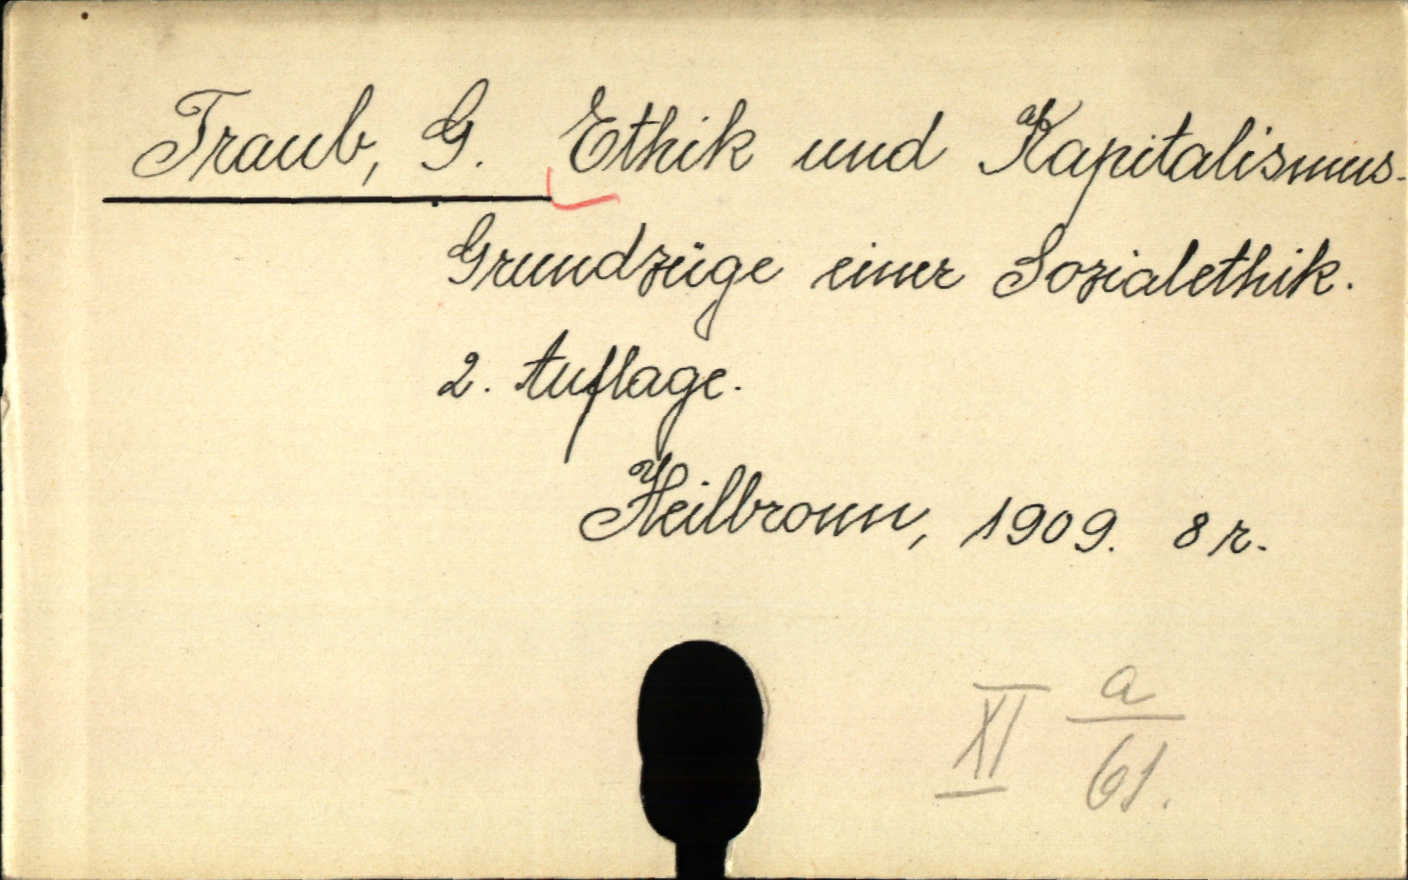 Traub, G. Ethik und Kapitalismus.
Grundzüge einer Sozialethik.
2. Auflage.
Heilbronn, 1909. 8r.
XI a/61.